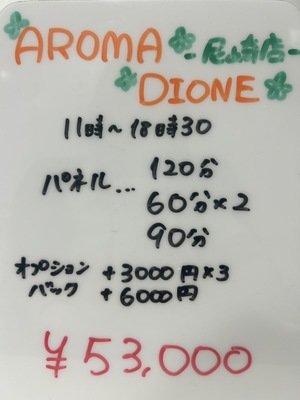 AROMA
-尼崎店-
DIONE
11時～18時30
120分
パネル...
60分×2
90分
オプション +3000円×3
バック +6000円
¥53,000